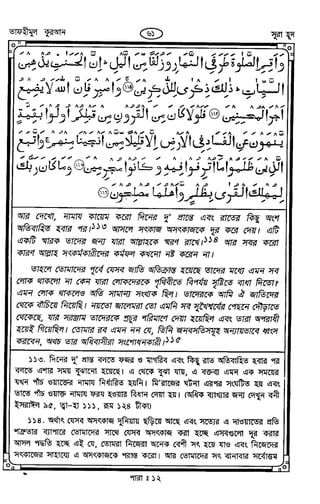 তাফহীমুল কুরআন
৬১
সূরা হূদ
وَأَقِمِ الصَّلٰوةَ طَرَفَيِ النَّهَارِ وَزُلَفًا مِّنَ الَّيْلِ ۚ إِنَّ الْحَسَنٰتِ يُذْهِبْنَ
السَّيِّاٰتِ ۚ ذٰلِكَ ذِكْرٰى لِلذّٰكِرِيْنَ ﴿١١٤﴾ وَاصْبِرْ فَإِنَّ اللّٰهَ لَا يُضِيْعُ
أَجْرَ الْمُحْسِنِيْنَ ﴿١١٥﴾ فَلَوْلَا كَانَ مِنَ الْقُرُوْنِ مِنْ قَبْلِكُمْ أُولُوْا بَقِيَّةٍ
يَّنْهَوْنَ عَنِ الْفَسَادِ فِى الْأَرْضِ إِلَّا قَلِيْلًا مِّمَّنْ أَنْجَيْنَا مِنْهُمْ ۚ وَاتَّبَعَ
الَّذِيْنَ ظَلَمُوْا مَآ أُتْرِفُوْا فِيْهِ وَكَانُوْا مُجْرِمِيْنَ ﴿١١٦﴾ وَمَا كَانَ رَبُّكَ
لِيُهْلِكَ الْقُرٰى بِظُلْمٍ وَّأَهْلُهَا مُصْلِحُوْنَ ﴿١١٧﴾
আর দেখো, নামায কায়েম করো দিনের দু' প্রান্তে এবং রাতের কিছু অংশ
অতিবাহিত হবার পর।১১৩ আসলে সৎকাজ অসৎকাজকে দূর করে দেয়। এটি
একটি স্মারক তাদের জন্য যারা আল্লাহকে স্মরণ রাখে।১১৪ আর সবর করো
কারণ আল্লাহ সৎকর্মকারীদের কর্মফল কখনো নষ্ট করেন না।
তাহলে তোমাদের পূর্বে যেসব জাতি অতিক্রান্ত হয়েছে তাদের মধ্যে এমন সব
লোক থাকলো না কেন যারা লোকদেরকে পৃথিবীতে বিপর্যয় সৃষ্টিতে বাধা দিতো?
এমন লোক থাকলেও অতি সামান্য সংখ্যক ছিল। তাদেরকে আমি ঐ জাতিদের
থেকে বাঁচিয়ে নিয়েছি। নয়তো জালেমরা তো এমনি সব সুখৈশ্বর্যের পেছনে দৌড়াতে
থেকেছে, যার সরঞ্জাম তাদেরকে প্রচুর পরিমাণে দেয়া হয়েছিল এবং তারা অপরাধী
হয়েই গিয়েছিল। তোমার রব এমন নন যে, তিনি জনবসতিসমূহ অন্যায়ভাবে ধ্বংস
করবেন, অথচ তার অধিবাসীরা সংশোধনকারী।১১৫
১১৩. দিনের দু' প্রান্ত বলতে ফজর ও মাগরিব এবং কিছু রাত অতিবাহিত হবার পর
বলতে এশার সময় বুঝানো হয়েছে। এ থেকে বুঝা যায়, এ বক্তব্য এমন এক সময়ের
যখন পাঁচ ওয়াক্তের নামায নির্ধারিত হয়নি। মি'রাজের ঘটনা এরপর সংঘটিত হয় এবং
তাতে পাঁচ ওয়াক্ত নামায ফরয হওয়ার বিধান দেয়া হয়। (অধিক ব্যাখ্যার জন্য দেখুন বনী
ইসরাঈল ৯৫, ত্বা-হা ১১১, রূম ১২৪ টীকা)
১১৪. অর্থাৎ যেসব অসৎকাজ দুনিয়ায় ছড়িয়ে আছে এবং সত্যের এ দাওয়াতের প্রতি
শত্রুতার ব্যাপারে তোমাদের সাথে যেসব অসৎকাজ করা হচ্ছে এসবগুলো দূর করার
আসল পদ্ধতি হচ্ছে এই যে, তোমরা নিজেরা অনেক বেশী সৎ হয়ে যাও এবং নিজেদের
সৎকাজের সাহায্যে এ অসৎকাজকে পরাস্ত করো। আর তোমাদের সৎ বানাবার সর্বোত্তম
পারা : ১২